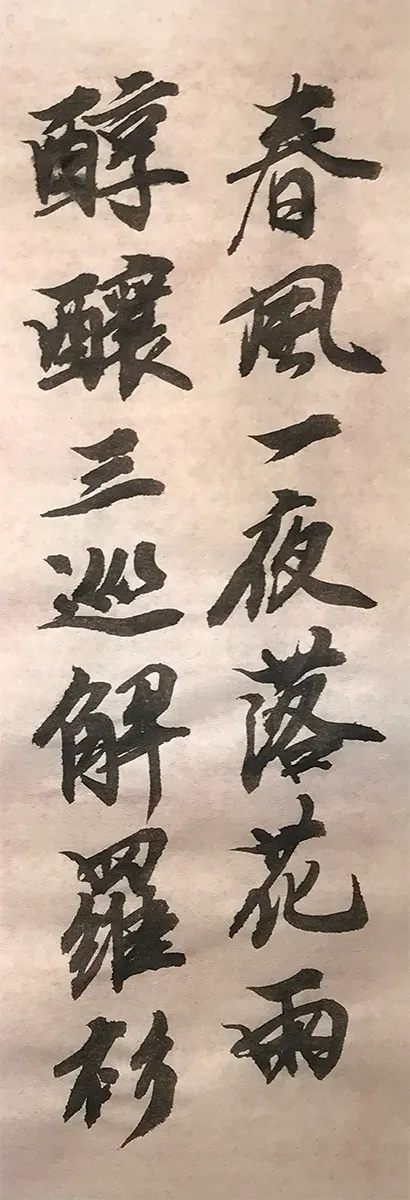 春風一夜落花雨
醇釀三巡解羅衫